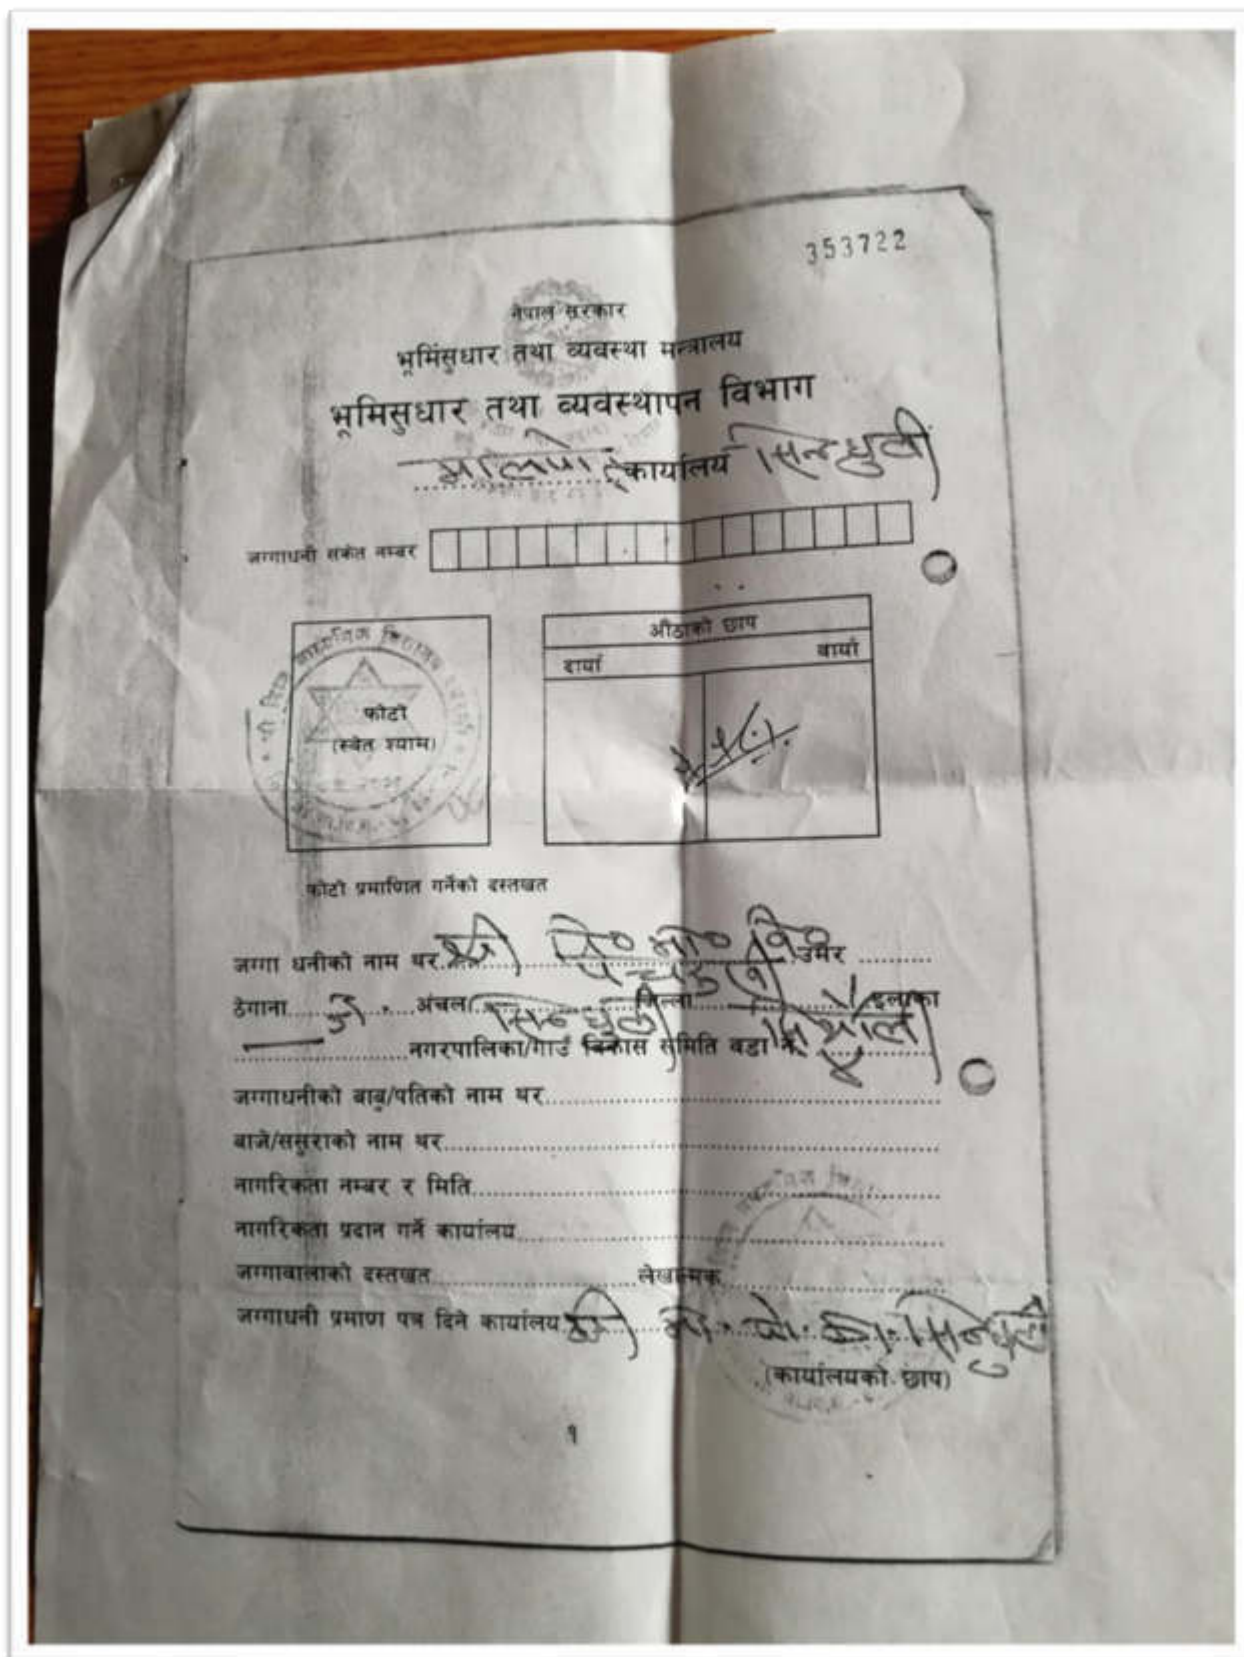 353722
नेपाल सरकार
भूमिसुधार तथा व्यवस्था मन्त्रालय
भूमिसुधार तथा व्यवस्थापन विभाग
मालपोत कार्यालय सिन्धुली
जग्गाधनी संकेत नम्बर
औंठाको छाप
दायाँ बायाँ
फोटो
(स्वेत श्याम)
फोटो प्रमाणित गर्नेको दस्तखत
जग्गा धनीको नाम थर श्री उमेर
ठेगाना अंचल सिन्धुली जिल्ला इलाका
नगरपालिका/गाउँ विकास समिति वडा नं.
जग्गाधनीको बाबु/पतिको नाम थर
बाजे/ससुराको नाम थर
नागरिकता नम्बर र मिति
नागरिकता प्रदान गर्ने कार्यालय
जग्गावालाको दस्तखत लेखात्मक
जग्गाधनी प्रमाण पत्र दिने कार्यालय श्री मा. पो. का. सिन्धुली
(कार्यालयको छाप)
१